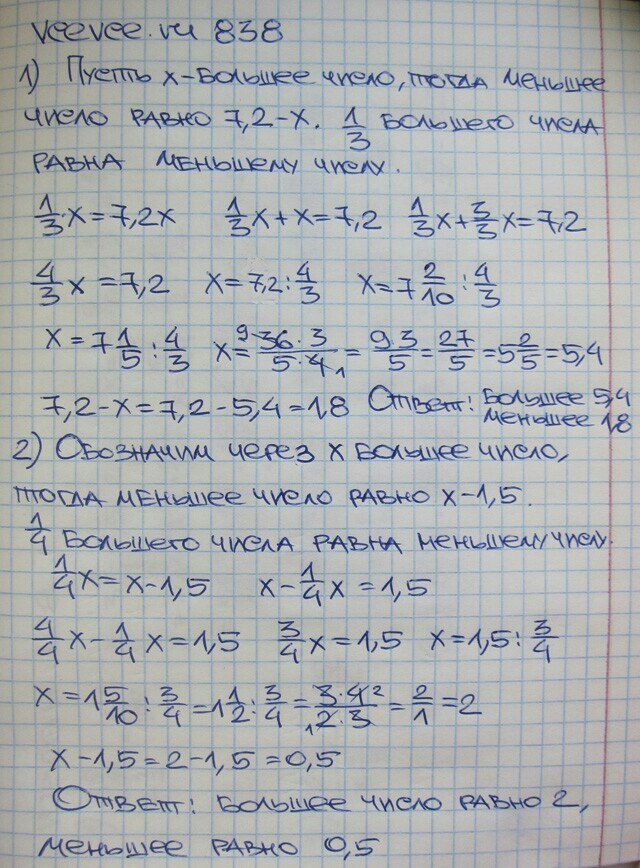 veevee.ru 838
1) Пусть x-большее число, тогда меньшее
число равно 7,2-x. 1/3 большего числа
равна меньшему числу.
1/3·x=7,2x 1/3x+x=7,2 1/3x+3/3x=7,2
4/3x=7,2 x=7,2:4/3 x=7 2/10:4/3
x=7 1/5:4/3 x=9 36·3/5·4 1=9·3/5=27/5=5 2/5=5,4
7,2-x=7,2-5,4=1,8 Ответ: большее 5,4
меньшее 1,8
2) Обозначим через x большее число,
тогда меньшее число равно x-1,5.
1/4 большего числа равна меньшему числу.
1/4x=x-1,5 x-1/4x=1,5
4/4x-1/4x=1,5 3/4x=1,5 x=1,5:3/4
x=1 5/10:3/4=1 1/2:3/4=3·4 2/1 2·3=2/1=2
x-1,5=2-1,5=0,5
Ответ: большее число равно 2,
меньшее равно 0,5